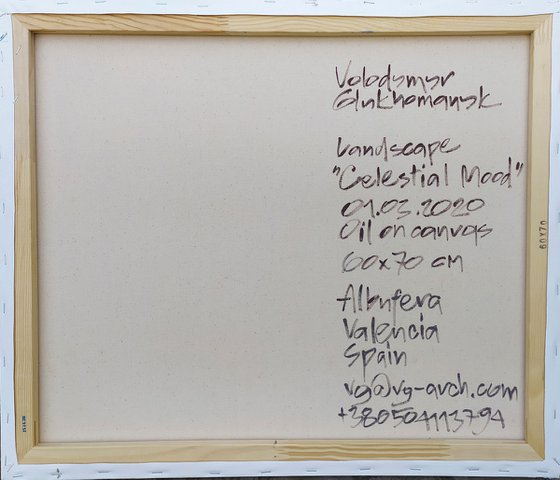 Volodymyr
Glukhomanyuk
Landscape
"Celestial Mood"
01.03.2020
Oil on canvas
60x70 cm
Albufera
Valencia
Spain
vg@vg-arch.com
+380504113794
60X70